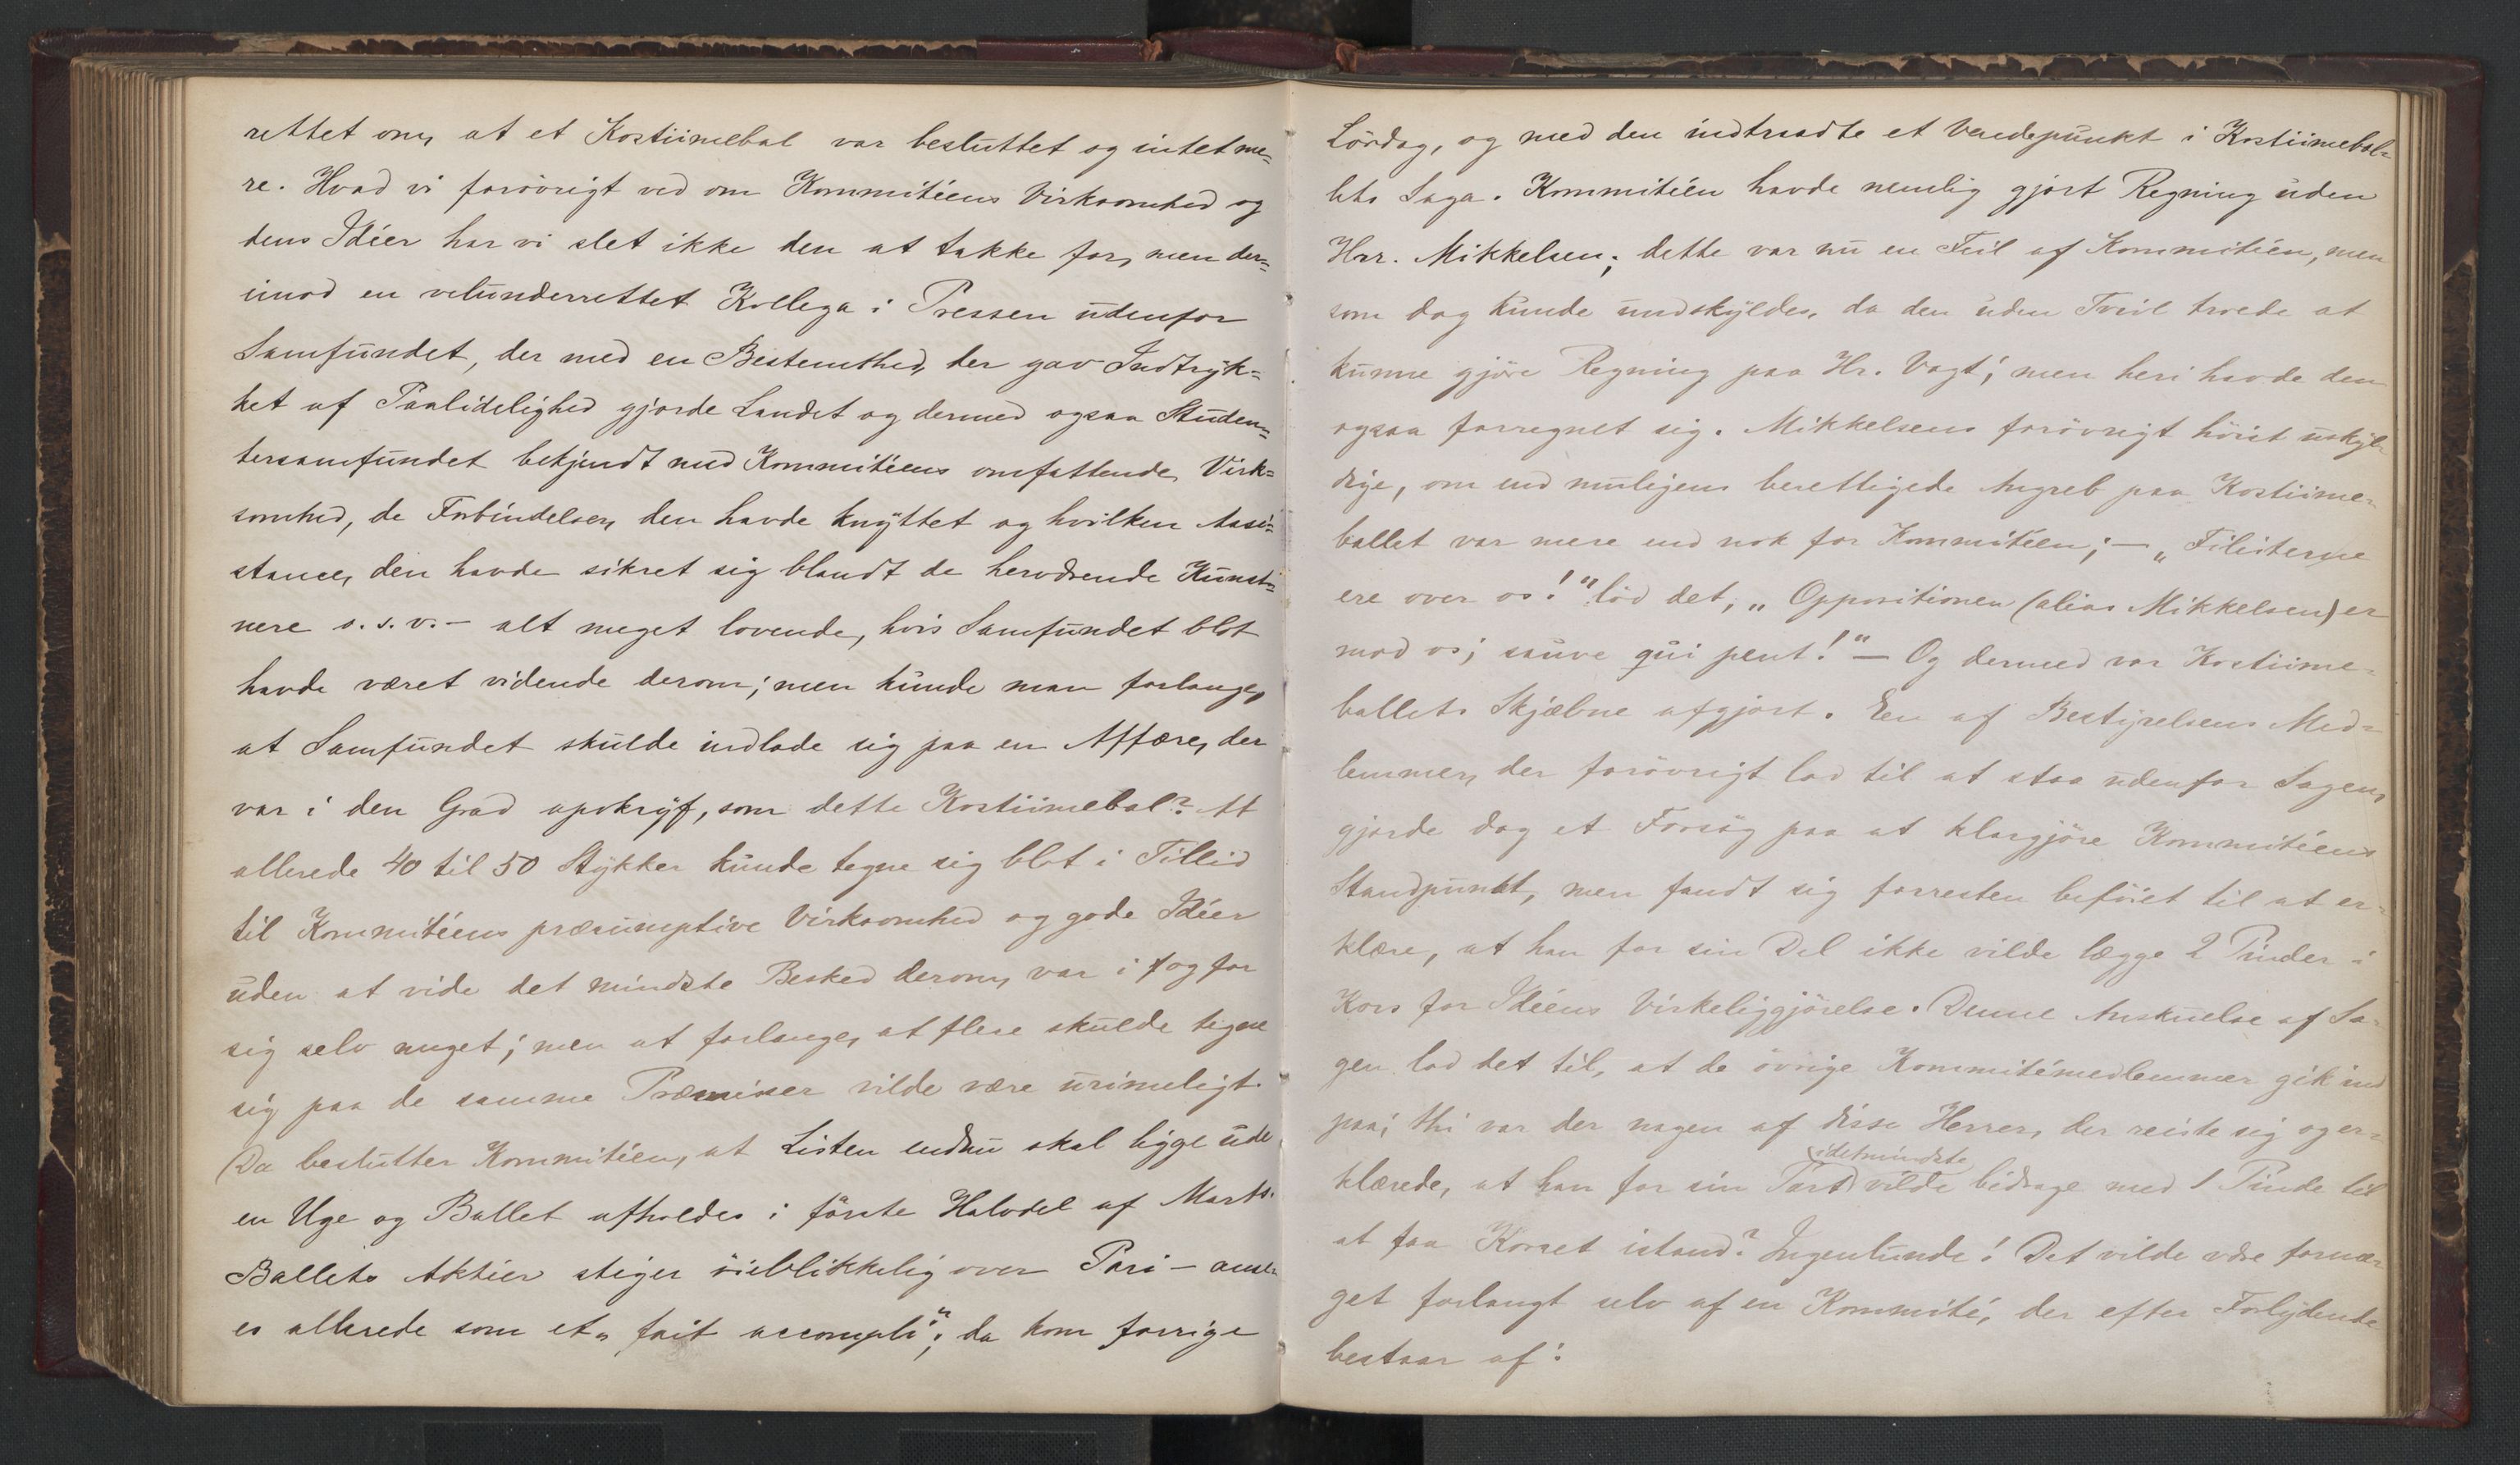 rettet om, at et Kostümebal var besluttet og intet me=
re. Hvad vi forövrigt ved om Kommitéens Virksomhed og
dens Idéer har vi slet ikke den at takke for, men der=
imod en velunderrettet Kollega i Pressen udenfor
Samfundet, der med en Bestemthed, der gav Indtryk=
ket af Paalidelighed gjorde Landet og dermed ogsaa Studen=
tersamfundet bekjendt med Kommitéens omfattende Virk=
somhed, de Forbindelser, den havde knyttet og hvilken Assi=
stance, den havde sikret sig blandt de herværende Kunst=
nere o. s. v. – alt meget lovende, hvis Samfundet blot
havde været vidende derom; men kunde man forlange,
at Samfundet skulde indlade sig paa en Affære, der
var i den Grad apokryf, som dette Kostümebal? At
allerede 40 til 50 Stykker kunde tegne sig blot i Tillid
til Kommitéens præsumptive Virksomhed og gode Idéer
uden at vide det mindste Besked derom, var i og for
sig selv meget; men at forlange, at flere skulde tegne
sig paa de samme Præmisser vilde være urimeligt.
Da beslutter Kommitéen, at Listen endnu skal ligge ude
en Uge og Ballet afholdes i förste Halvdel af Marts.
Ballets Aktier stiger öieblikkelig over Pari – anse=
es allerede som et „fait accompli“; da kom forrige
Lördag, og med den indtraadte et Vendepunkt i Kostümebal=
lets Saga. Kommitéen havde nemlig gjort Regning uden
Hrr. Mikkelsen; dette var nu en Feil af Kommitéen, men
som dog kunde undskyldes, da den uden Tvil troede at
kunne gjöre Regning paa Hr. Vogt; men heri havde den
ogsaa forregnet sig. Mikkelsens forövrigt höist uskyl=
dige, om end muligens berettigede Angreb paa Kostüme=
ballet var mere end nok for Kommitéen; – „Filisterne
ere over os!“ löd det, „Oppositionen (alias Mikkelsen) er
mod os; sauve qui peut!“ – Og dermed var Kostüme=
ballets Skjæbne afgjort. En af Bestyrelsens Med=
lemmer, der forövrigt lod til at staa udenfor Sagen,
gjorde dog et Forsög paa at klargjöre Kommitéens
Standpunkt, men fandt sig forresten beföiet til at er=
klære, at han for sin Del ikke vilde lægge 2 Pinder i
Kors for Idéens Virkeliggjörelse. Denne Anskuelse af Sa=
gen lod det til, at de övrige Kommitémedlemmer gik ind
paa; thi var der nogen af disse Herrer, der reiste sig og er=
klærede, at han for sin Part idetmindste vilde bidrage med 1 Pinde til
at faa Korset istand? Ingenlunde! Det vilde være forme=
get forlangt selv af en Kommité, der efter Forlydende
bestaar af: